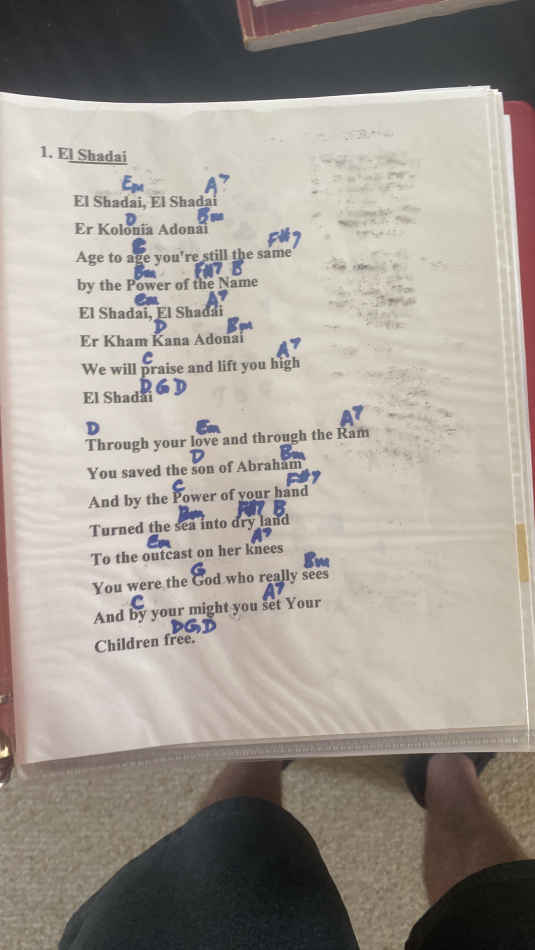 1. El Shadai
Em A7
El Shadai, El Shadai
D Bm
Er Kolonia Adonai
C F#7
Age to age you're still the same
Bm F#7 B
by the Power of the Name
Em A7
El Shadai, El Shadai
D Bm
Er Kham Kana Adonai
C A7
We will praise and lift you high
D G D
El Shadai
D Em A7
Through your love and through the Ram
D Bm
You saved the son of Abraham
C F#7
And by the Power of your hand
Bm F#7 B
Turned the sea into dry land
Em A7
To the outcast on her knees
G Bm
You were the God who really sees
C A7
And by your might you set Your
D G D
Children free.